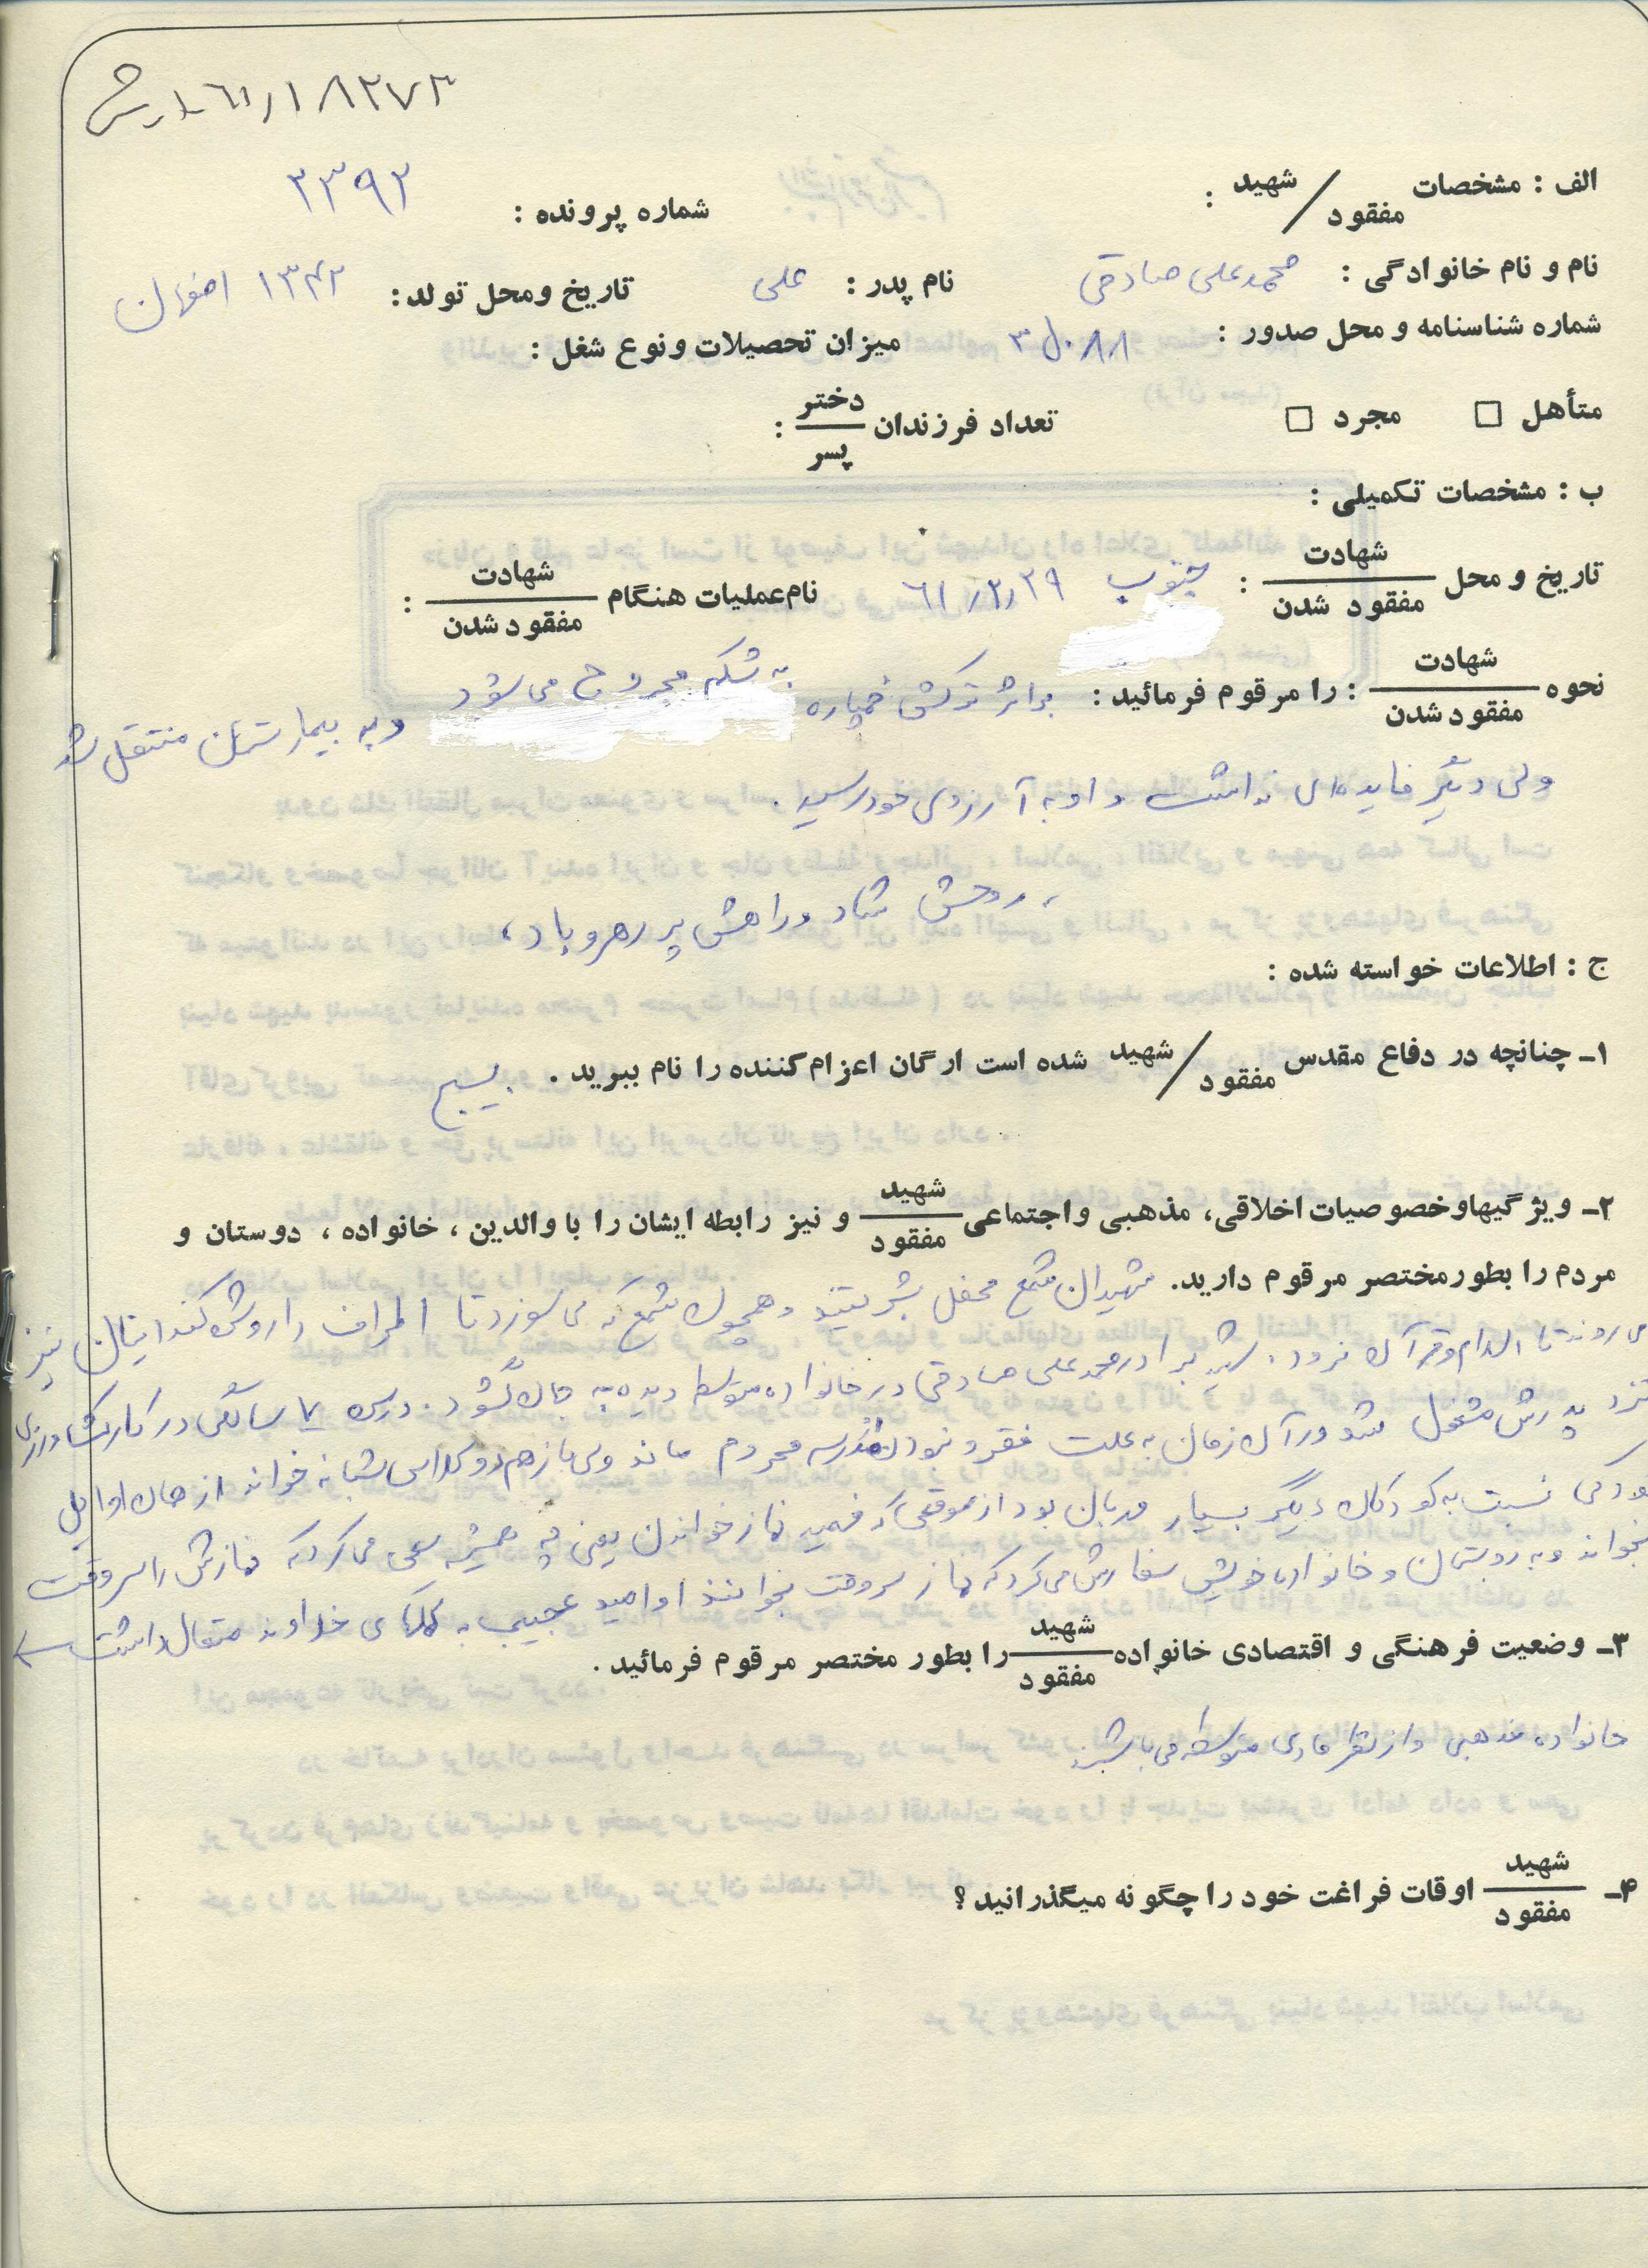 ۱۰۶۱/۱۸۲۷۳
الف : مشخصات شهید / مفقود :
شماره پرونده : ۲۳۹۲
نام و نام خانوادگی : محمدعلی صادقی نام پدر : علی تاریخ ومحل تولد: ۱۳۴۲ اصفهان
شماره شناسنامه و محل صدور : میزان تحصیلات ونوع شغل :
متأهل □ مجرد □ تعداد فرزندان دختر / پسر :
ب : مشخصات تکمیلی :
تاریخ و محل شهادت / مفقود شدن : جنوب ۶۱/۲/۲۹ نام عملیات هنگام شهادت / مفقود شدن :
نحوه شهادت / مفقود شدن : را مرقوم فرمائید : براثر ترکش خمپاره به شکم مجروح می شود و به بیمارستان منتقل شد
ولی دیگر فایده ای نداشت و او به آرزوی خود رسید .
روحش شاد و راهش پر رهرو باد ،
ج : اطلاعات خواسته شده :
۱ـ چنانچه در دفاع مقدس شهید / مفقود شده است ارگان اعزام کننده را نام ببرید . بسیج
۲ـ ویژگیهاوخصوصیات اخلاقی، مذهبی واجتماعی شهید / مفقود و نیز رابطه ایشان را با والدین ، خانواده ، دوستان و
مردم را بطورمختصر مرقوم دارید. شهیدان شمع محفل بشریتند و همچون شمع که می سوزد تا اطراف را روشن کند اینان نیز
می روند تا اسلام و قرآن نرود . شهید برادر محمدعلی صادقی در خانواده متوسط دیده به جهان گشود . در سن ۷ سالگی در کار کشاورزی
نزد پدرش مشغول شد و در آن زمان به علت فقر و نبودن مدرسه محروم ماند ولی باز هم دو کلاس شبانه خواند از همان اوایل
کودکی نسبت به کودکان دیگر بسیار مهربان بود از موقعی که فهمید نماز خواندن یعنی چه همیشه سعی می کرد که نمازش را سر وقت
بخواند و به دوستان و خانواده خویش سفارش می کرد که نماز سر وقت بخوانند او امید عجیبی به کمکهای خداوند متعال داشت ←
۳ـ وضعیت فرهنگی و اقتصادی خانواده شهید / مفقود را بطور مختصر مرقوم فرمائید .
خانواده مذهبی و از نظر مادی متوسط می باشند
۴ـ شهید / مفقود اوقات فراغت خود را چگونه میگذرانید ؟